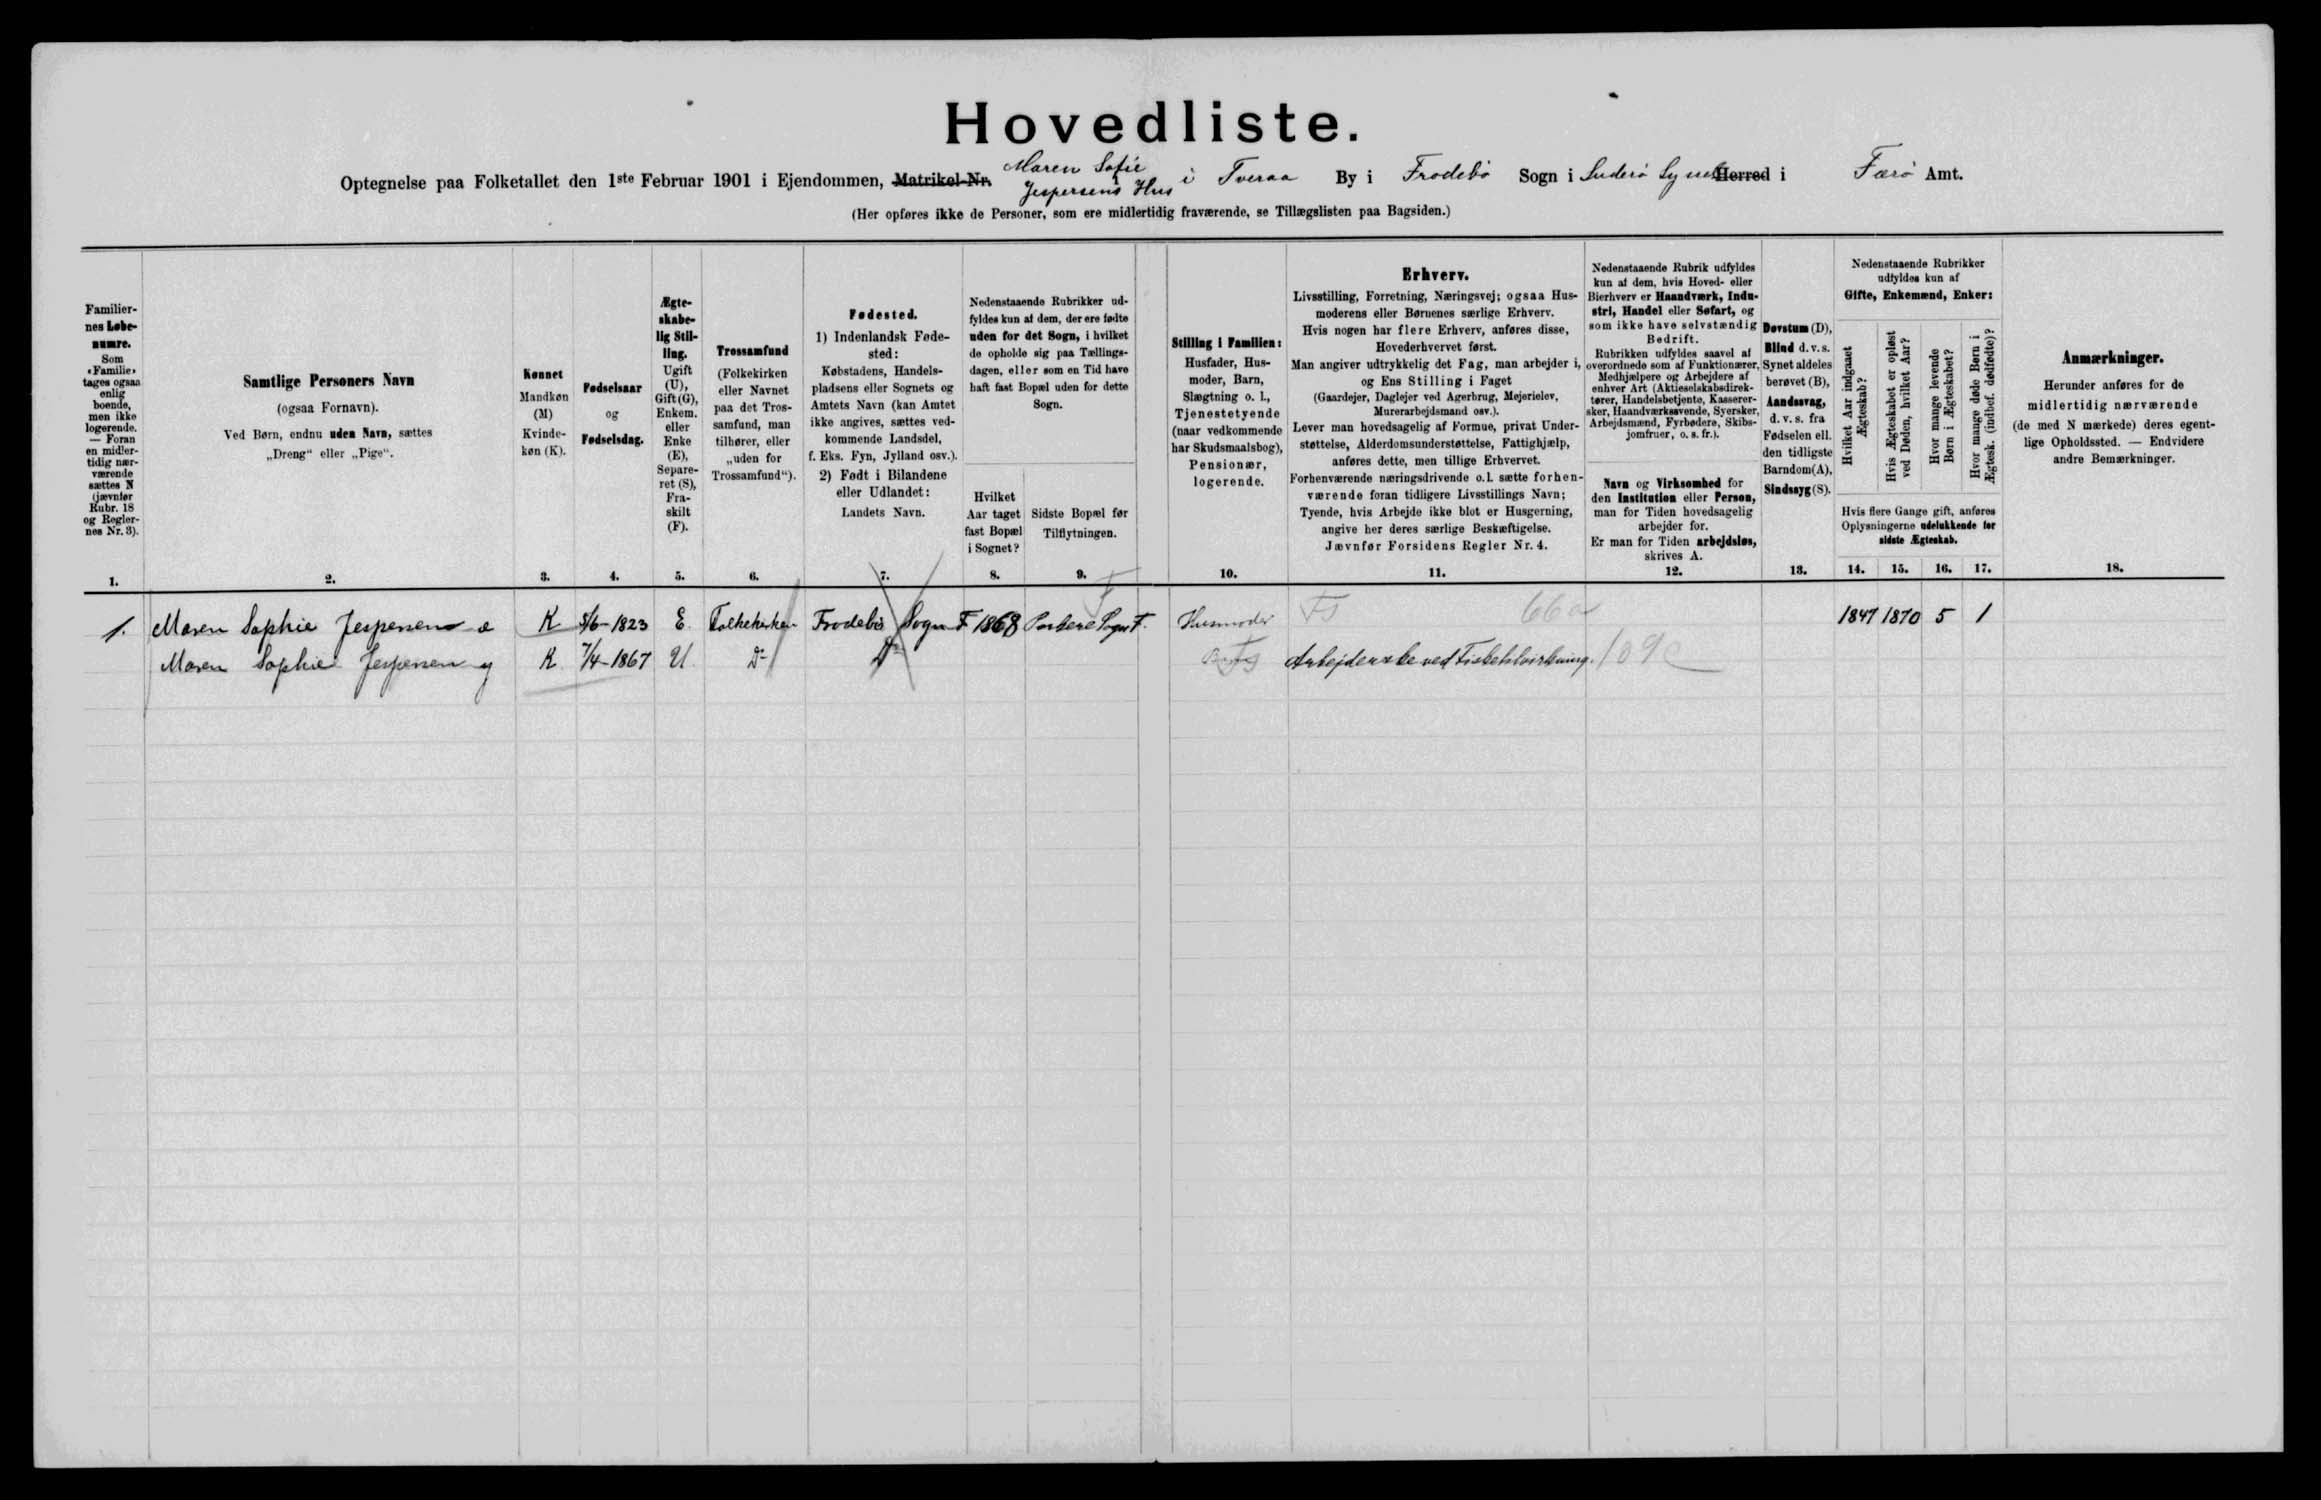 Hovedliste.
Optegnelse paa Folketallet den 1ste Februar 1901 i Ejendommen, Matrikel-Nr. Maren Sofie Jespersens Hus i Tveraa By i Frodebø Sogn i Suderø Syssel Herred i Færø Amt.
(Her opføres ikke de Personer, som ere midlertidig fraværende, se Tillægslisten paa Bagsiden.)
Familier-
nes Løbe-
numre.
Som
«Familie»
tages ogsaa
enlig
boende,
men ikke
logerende.
— Foran
en midler-
tidig nær-
værende
sættes N
(jævnfør
Rubr. 18
og Regler-
nes Nr. 3).
1.
Samtlige Personers Navn
(ogsaa Fornavn).
Ved Børn, endnu uden Navn, sættes
„Dreng“ eller „Pige“.
2.
Kønnet
Mandkøn
(M)
Kvinde-
køn (K).
3.
Fødselsaar
og
Fødselsdag.
4.
Ægte-
skabe-
lig Stil-
ling.
Ugift
(U),
Gift (G),
Enkem.
eller
Enke
(E),
Separe-
ret (S),
Fra-
skilt
(F).
5.
Trossamfund
(Folkekirken
eller Navnet
paa det Tros-
samfund, man
tilhører, eller
„uden for
Trossamfund“).
6.
Fødested.
1) Indenlandsk Føde-
sted:
Købstadens, Handels-
pladsens eller Sognets og
Amtets Navn (kan Amtet
ikke angives, sættes ved-
kommende Landsdel,
f. Eks. Fyn, Jylland osv.).
2) Født i Bilandene
eller Udlandet:
Landets Navn.
7.
Nedenstaaende Rubrikker ud-
fyldes kun af dem, der ere fødte
uden for det Sogn, i hvilket
de opholde sig paa Tællings-
dagen, eller som en Tid have
haft fast Bopæl uden for dette
Sogn.
Hvilket
Aar taget
fast Bopæl
i Sognet?
8.
Sidste Bopæl før
Tilflytningen.
9.
Stilling i Familien:
Husfader, Hus-
moder, Barn,
Slægtning o. l.,
Tjenestetyende
(naar vedkommende
har Skudsmaalsbog),
Pensionær,
logerende.
10.
Erhverv.
Livsstilling, Forretning, Næringsvej; ogsaa Hus-
moderens eller Børnenes særlige Erhverv.
Hvis nogen har flere Erhverv, anføres disse,
Hovederhvervet først.
Man angiver udtrykkelig det Fag, man arbejder i,
og Ens Stilling i Faget
(Gaardejer, Daglejer ved Agerbrug, Mejerielev,
Murerarbejdsmand osv.).
Lever man hovedsagelig af Formue, privat Under-
støttelse, Alderdomsunderstøttelse, Fattighjælp,
anføres dette, men tillige Erhvervet.
Forhenværende næringsdrivende o. l. sætte forhen-
værende foran tidligere Livsstillings Navn;
Tyende, hvis Arbejde ikke blot er Husgerning,
angive her deres særlige Beskæftigelse.
Jævnfør Forsidens Regler Nr. 4.
11.
Nedenstaaende Rubrik udfyldes
kun af dem, hvis Hoved- eller
Bierhverv er Haandværk, Indu-
stri, Handel eller Søfart, og
som ikke have selvstændig
Bedrift.
Rubrikken udfyldes saavel af
overordnede som af Funktionærer,
Medhjælpere og Arbejdere af
enhver Art (Aktieselskabsdirek-
tører, Handelsbetjente, Kasserer-
sker, Haandværkssvende, Syersker,
Arbejdsmænd, Fyrbødere, Skibs-
jomfruer, o. s. fr.).
Navn og Virksomhed for
den Institution eller Person,
man for Tiden hovedsagelig
arbejder for.
Er man for Tiden arbejdsløs,
skrives A.
12.
Døvstum (D),
Blind d. v. s.
Synet aldeles
berøvet (B),
Aandssvag,
d. v. s. fra
Fødselen ell.
den tidligste
Barndom (A),
Sindssyg (S).
13.
Nedenstaaende Rubrikker
udfyldes kun af
Gifte, Enkemænd, Enker:
Hvilket Aar indgaaet
Ægteskab?
Hvis Ægteskabet er opløst
ved Døden, hvilket Aar?
Hvor mange levende
Børn i Ægteskabet?
Hvor mange døde Børn i
Ægtesk. (indbef. dødfødte)?
Hvis flere Gange gift, anføres
Oplysningerne udelukkende for
sidste Ægteskab.
14. 15. 16. 17.
Anmærkninger.
Herunder anføres for de
midlertidig nærværende
(de med N mærkede) deres egent-
lige Opholdssted. — Endvidere
andre Bemærkninger.
18.
1. Maren Sophie Jespersen æ K 5/6-1823 E. Folkekirken Frodebø Sogn F 1868 Porkere Sogn F. Husmoder Fs 66a 1847 1870 5 1
Maren Sophie Jespersen y K 7/4-1867 U. Do Do Fs Arbejderske ved Fisketilvirkning. 109c